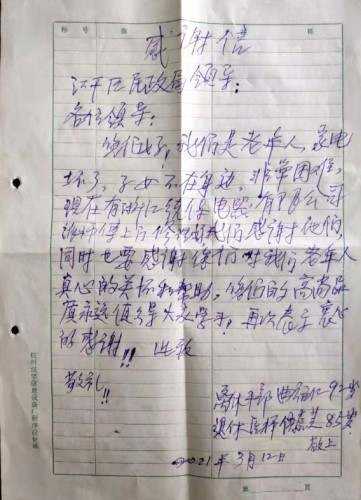 感谢信
江干区民政局领导:
各位领导:
您们好,我们是老年人,家电
坏了,子女不在身边,非常困难,
现在有浙江统保电器有限公司
师傅上门修 我们感谢他们,
同时也要感谢你们对我们老年人
真心的关怀和帮助,您们的高尚品
质永远值得大家学习,再次表示衷心
的感谢!! 此致
敬礼!!
离休干部曲 仁 92岁
退休医师 芝 85岁
敬上
2021年3月12日
第 页